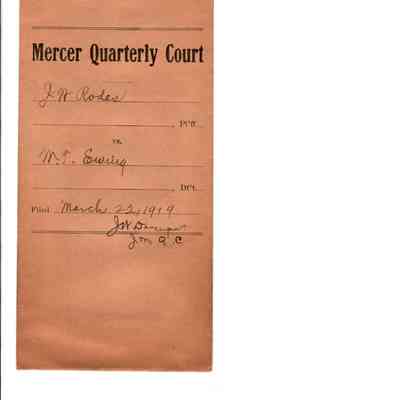 Mercer Quarterly Court
J. W. Rodes
, Pl'ff.
vs.
W. T. Ewing
, Df't.
Filed March 22, 1919
J W
J M Q C